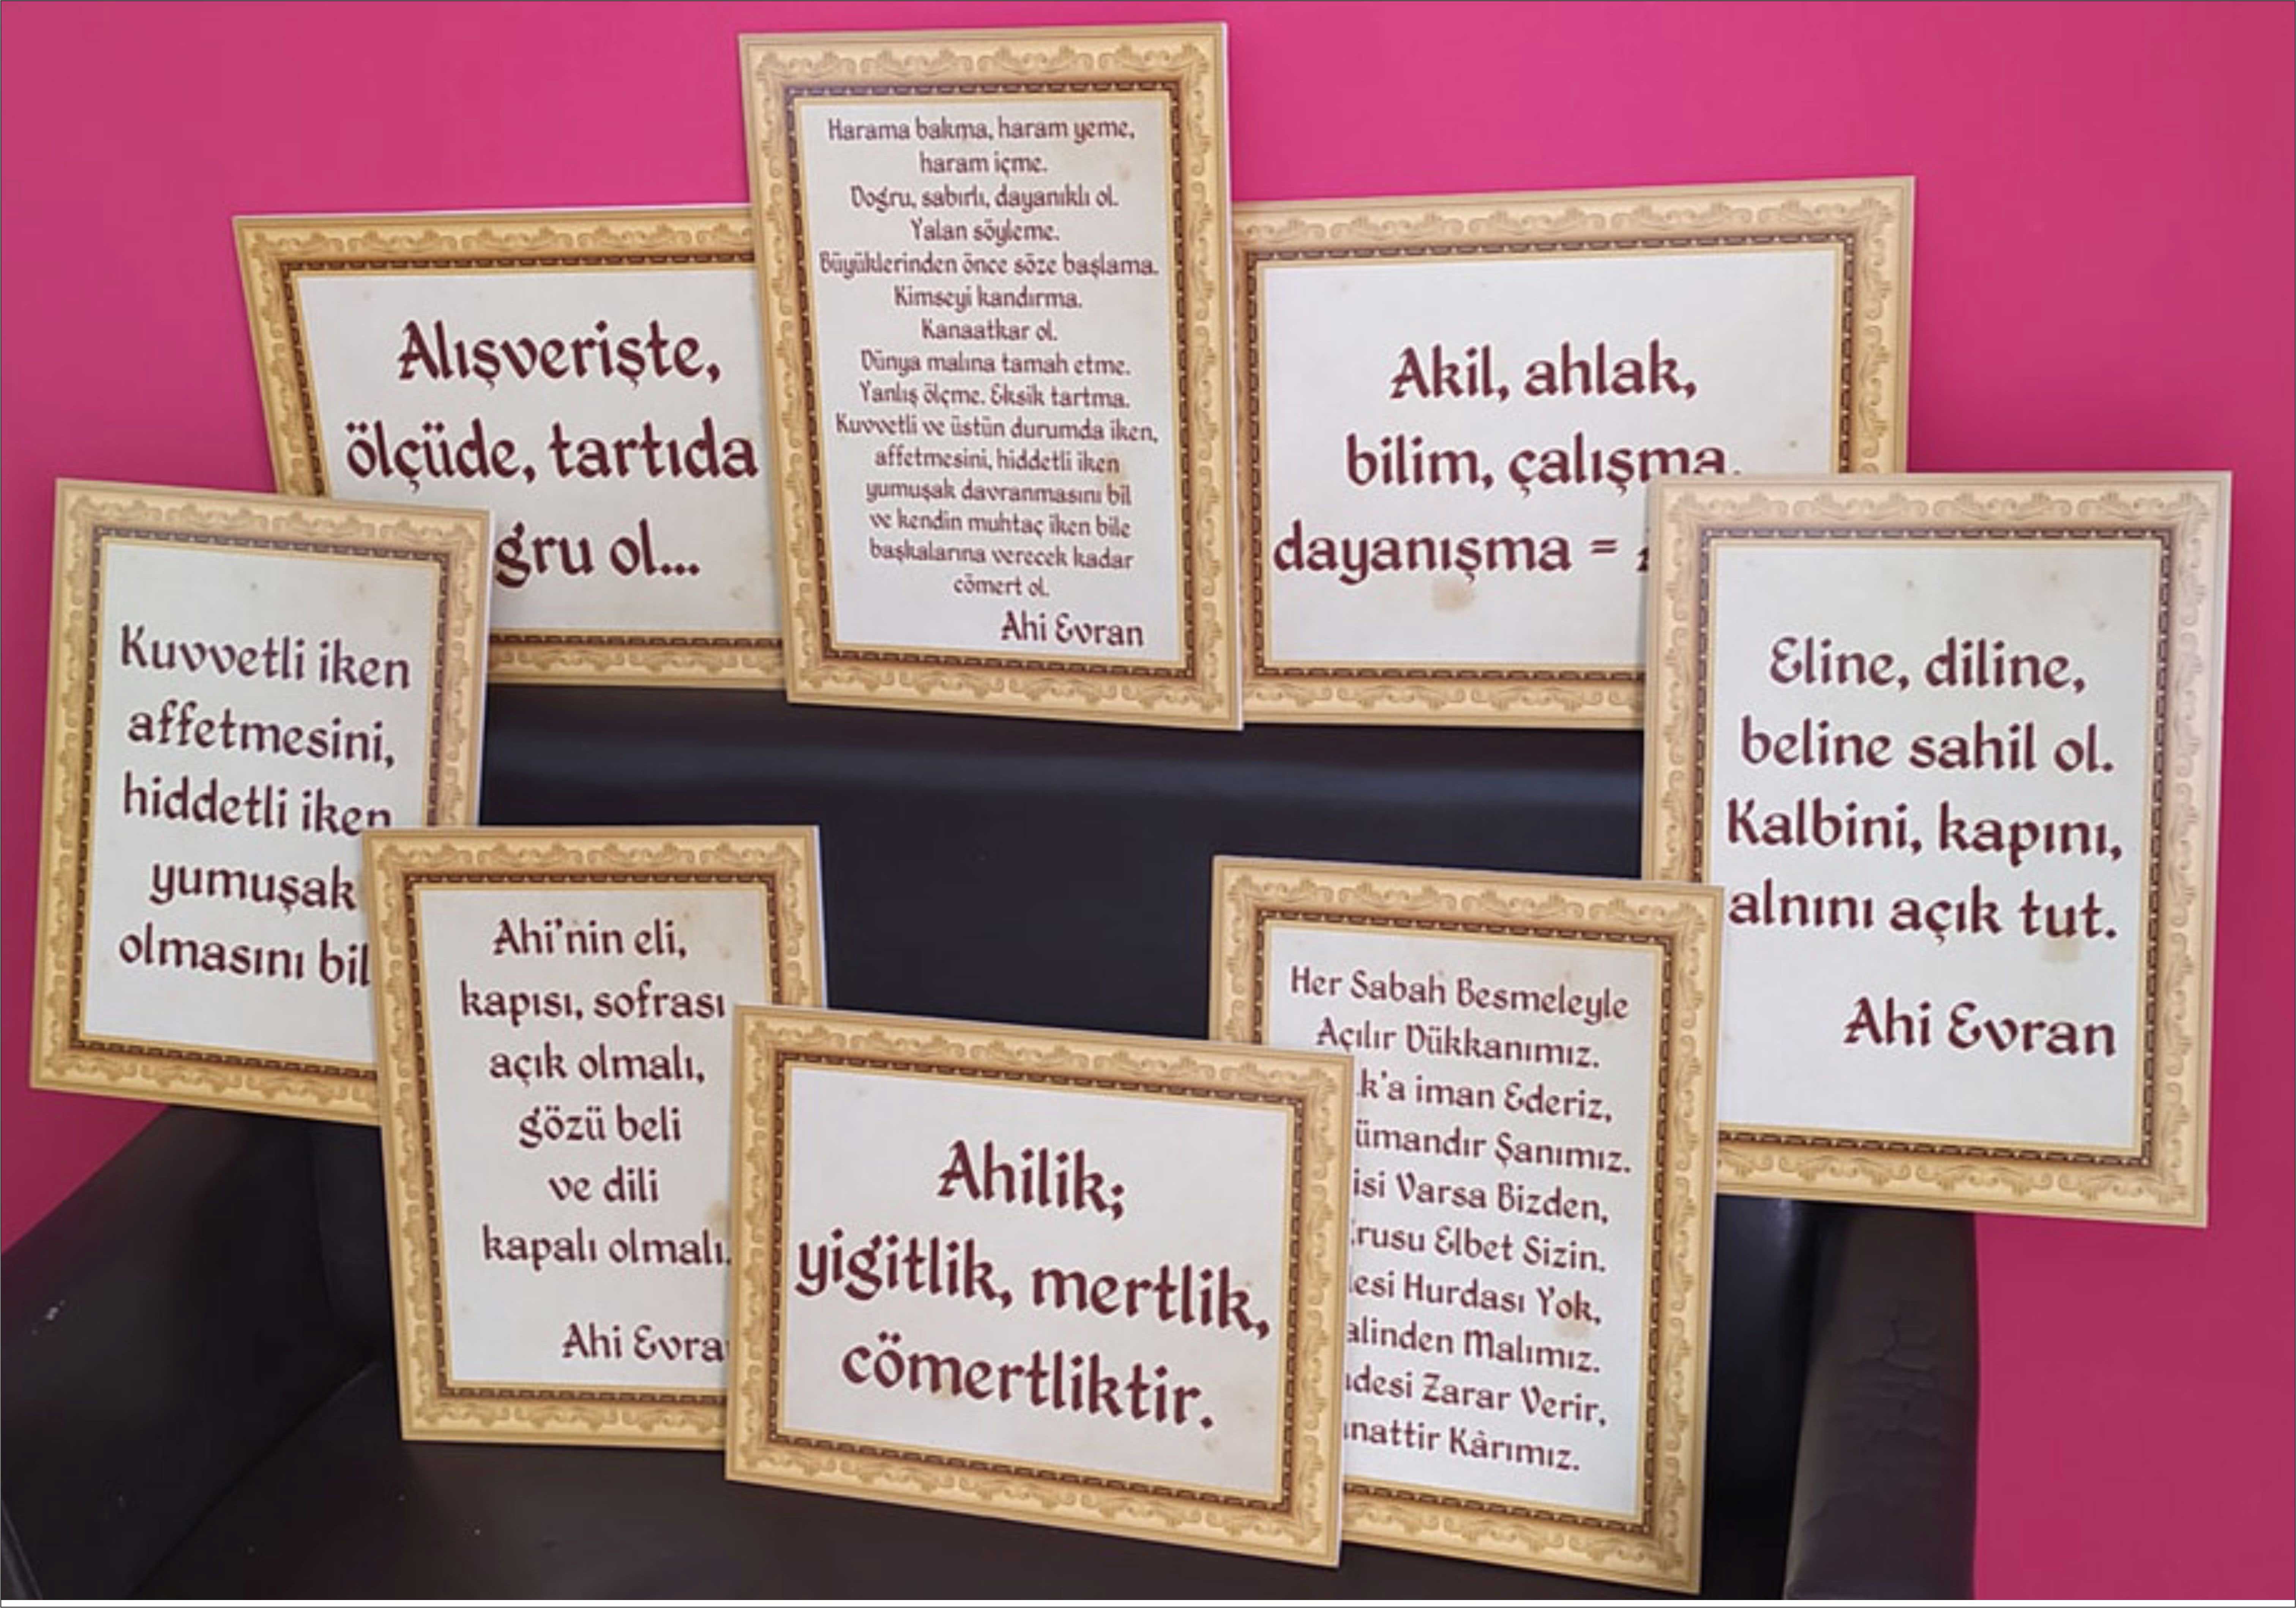 Harama bakma, haram yeme,
haram içme.
Doğru, sabırlı, dayanıklı ol.
Yalan söyleme.
Büyüklerinden önce söze başlama.
Kimseyi kandırma.
Kanaatkar ol.
Dünya malına tamah etme.
Yanlış ölçme. Eksik tartma.
Kuvvetli ve üstün durumda iken,
affetmesini, hiddetli iken
yumuşak davranmasını bil
ve kendin muhtaç iken bile
başkalarına verecek kadar
cömert ol.
Ahi Evran
Alışverişte,
ölçüde, tartıda
ol...
Akil, ahlak,
bilim, çalışma,
dayanışma =
Kuvvetli iken
affetmesini,
hiddetli iken
yumuşak
olmasını bil
Eline, diline,
beline sahil ol.
Kalbini, kapını,
alnını açık tut.
Ahi Evran
Ahi'nin eli,
kapısı, sofrası
açık olmalı,
gözü beli
ve dili
kapalı olmalı.
Ahi
Ahilik;
yiğitlik, mertlik,
cömertliktir.
Her Sabah Besmeleyle
Açılır Dükkanımız.
iman Ederiz,
Şanımız.
Varsa Bizden,
Elbet Sizin.
Hurdası Yok,
Malımız.
Zarar Verir,
Kârımız.